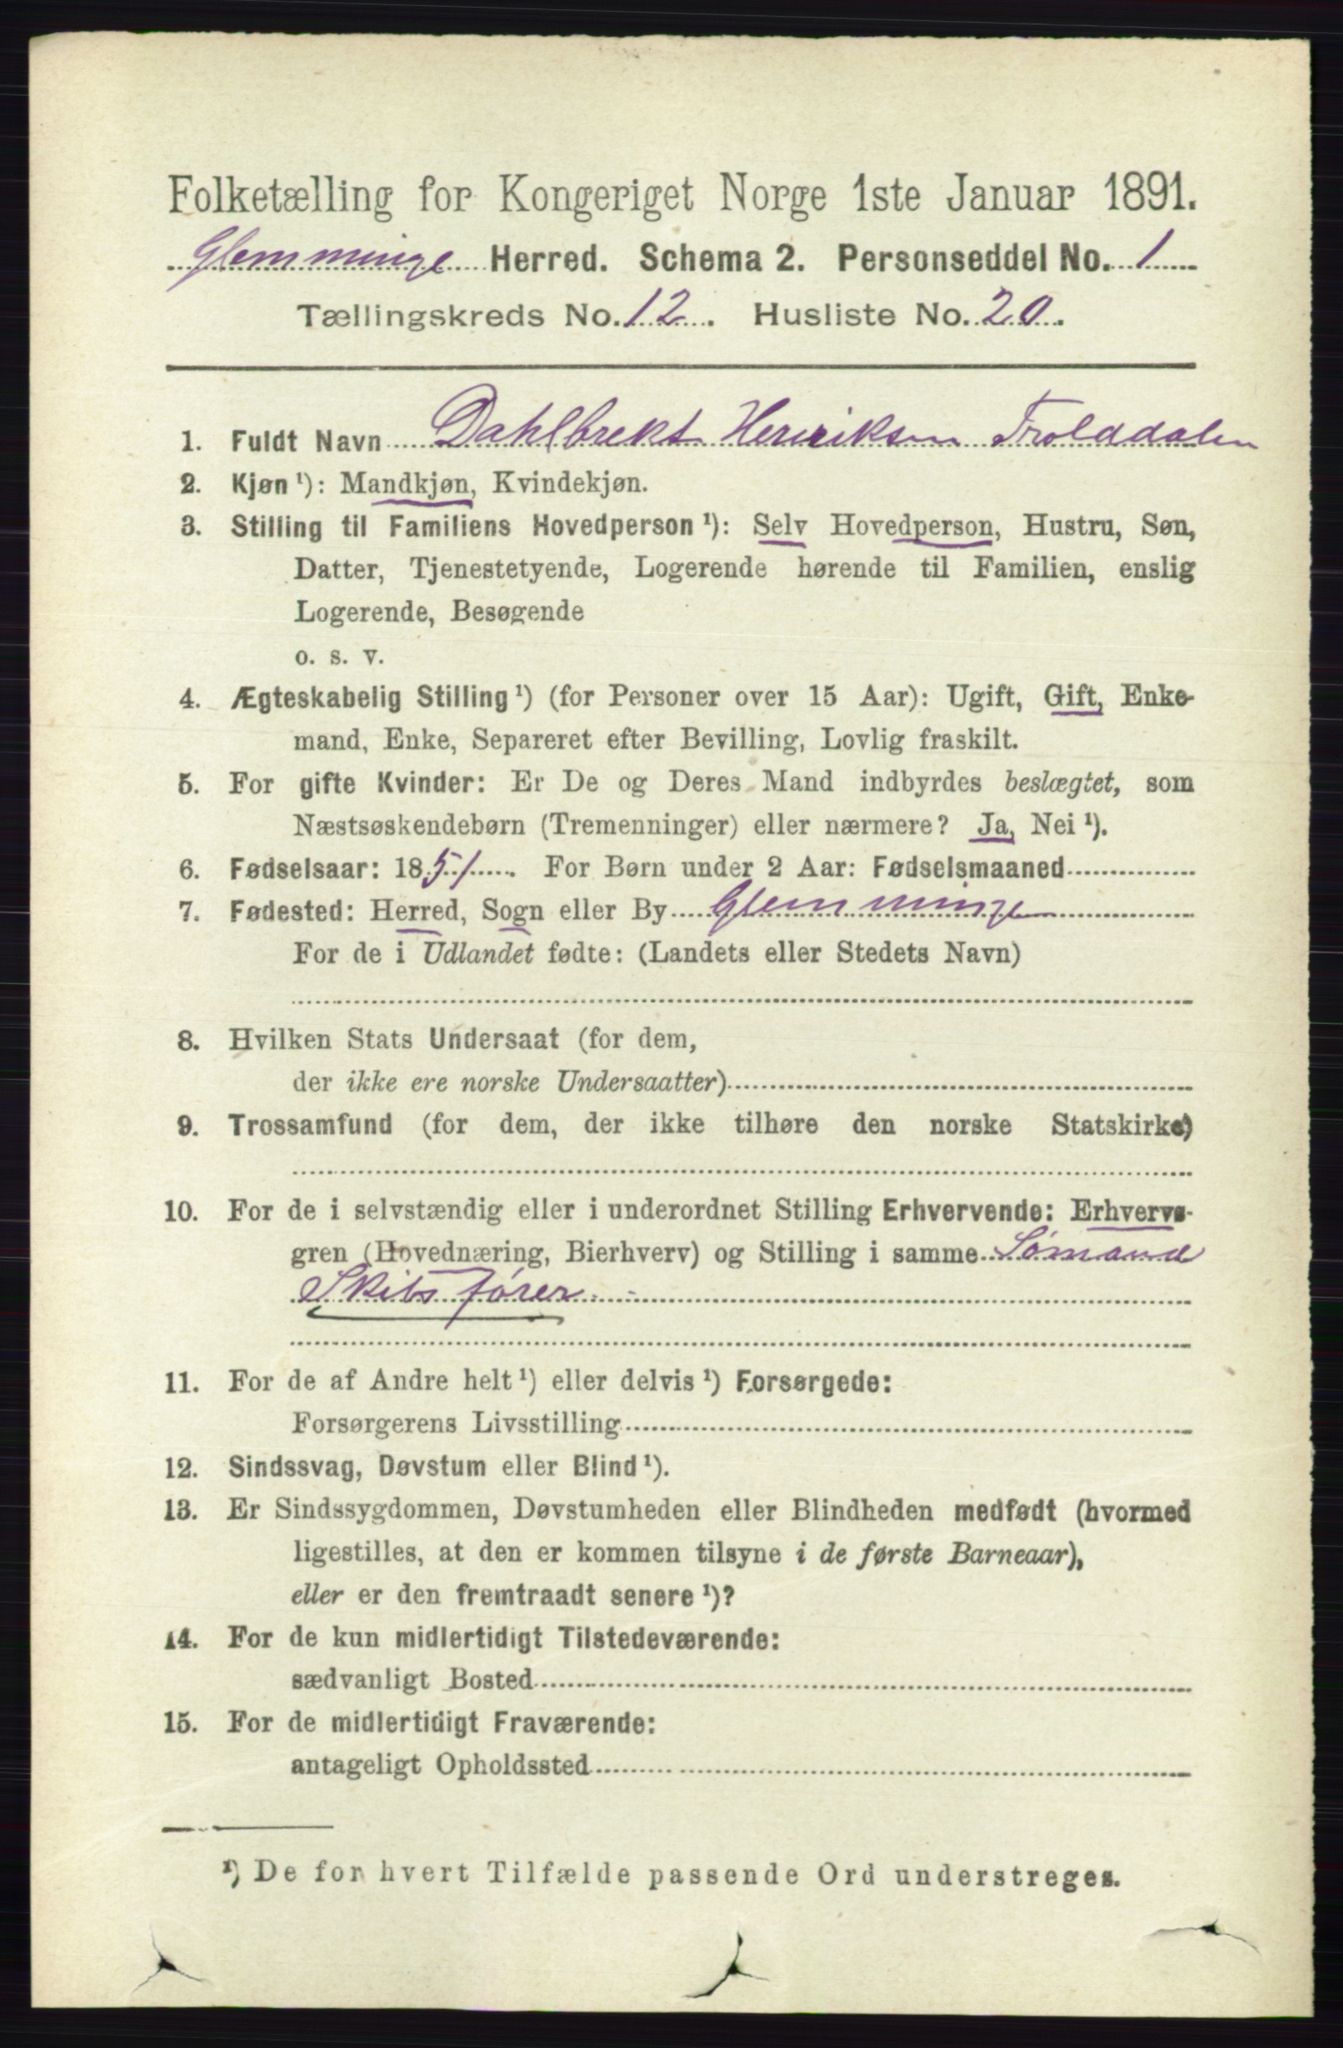 Folketælling for Kongeriget Norge 1ste Januar 1891.
Glemminge Herred. Schema 2. Personseddel No. 1
Tællingskreds No. 12. Husliste No. 20.
1. Fuldt Navn Dahlbrekt Henriksen Trolddalen
2. Kjøn ¹): Mandkjøn, Kvindekjøn.
3. Stilling til Familiens Hovedperson ¹): Selv Hovedperson, Hustru, Søn,
Datter, Tjenestetyende, Logerende hørende til Familien, enslig
Logerende, Besøgende
o. s. v.
4. Ægteskabelig Stilling ¹) (for Personer over 15 Aar): Ugift, Gift, Enke-
mand, Enke, Separeret efter Bevilling, Lovlig fraskilt.
5. For gifte Kvinder: Er De og Deres Mand indbyrdes beslægtet, som
Næstsøskendebørn (Tremenninger) eller nærmere? Ja, Nei ¹).
6. Fødselsaar: 1851. For Børn under 2 Aar: Fødselsmaaned
7. Fødested: Herred, Sogn eller By Glemminge
For de i Udlandet fødte: (Landets eller Stedets Navn)
8. Hvilken Stats Undersaat (for dem,
der ikke ere norske Undersaatter)
9. Trossamfund (for dem, der ikke tilhøre den norske Statskirke)
10. For de i selvstændig eller i underordnet Stilling Erhvervende: Erhvervs-
gren (Hovednæring, Bierhverv) og Stilling i samme Sømand
Skibsfører.
11. For de af Andre helt ¹) eller delvis ¹) Forsørgede:
Forsørgerens Livsstilling
12. Sindssvag, Døvstum eller Blind ¹).
13. Er Sindssygdommen, Døvstumheden eller Blindheden medfødt (hvormed
ligestilles, at den er kommen tilsyne i de første Barneaar),
eller er den fremtraadt senere ¹)?
14. For de kun midlertidigt Tilstedeværende:
sædvanligt Bosted
15. For de midlertidigt Fraværende:
antageligt Opholdssted
¹) De for hvert Tilfælde passende Ord understreges.